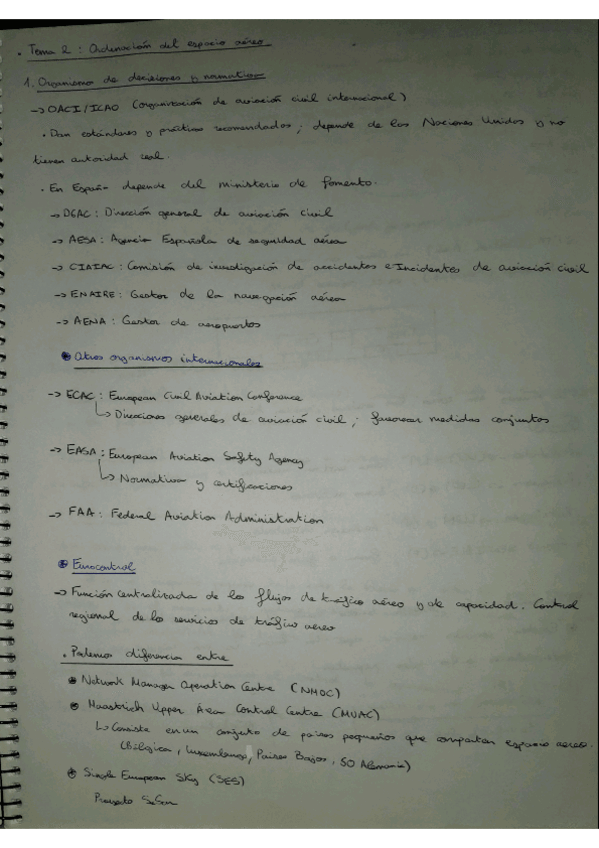 · Tema 2 : Ordenación del espacio aéreo
1. Organismo de decisiones y normativo
-> OACI/ICAO (organización de aviación civil internacional)
· Dan estándares y prácticas recomendados ; depende de las Naciones Unidas y no
tienen autoridad real.
· En España depende del ministerio de fomento.
-> DGAC : Dirección general de aviación civil
-> AESA : Agencia Española de seguridad aérea
-> CIAIAC : Comisión de investigación de accidentes e Incidentes de aviación civil
-> ENAIRE : Gestor de la navegación aérea
-> AENA : Gestor de aeropuertos
Otros organismos internacionales
-> ECAC : European Civil Aviation Conference
Direcciones generales de aviación civil ; favorecer medidas conjuntas
-> EASA : European Aviation Safety Agency
Normativas y certificaciones
-> FAA : Federal Aviation Administration
Eurocontrol
-> Función centralizada de los flujos de tráfico aéreo y de capacidad. Control
regional de los servicios de tráfico aéreo
· Podemos diferencia entre
Network Manager Operation Centre (NMOC)
Maastrich Upper Area Control Centre (MUAC)
Consiste en un conjunto de países pequeños que comparten espacio aéreo.
(Bélgica, Luxemburgo, Países Bajos, SO Alemania)
Single European Sky (SES)
Proyecto SeSar